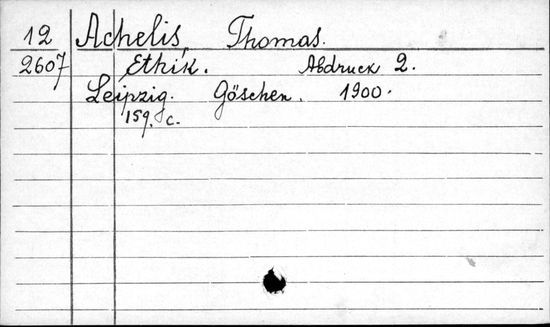 12 Achelis, Thomas.
2607 Ethik. Abdruck 2.
Leipzig. Göschen. 1900.
159. c.